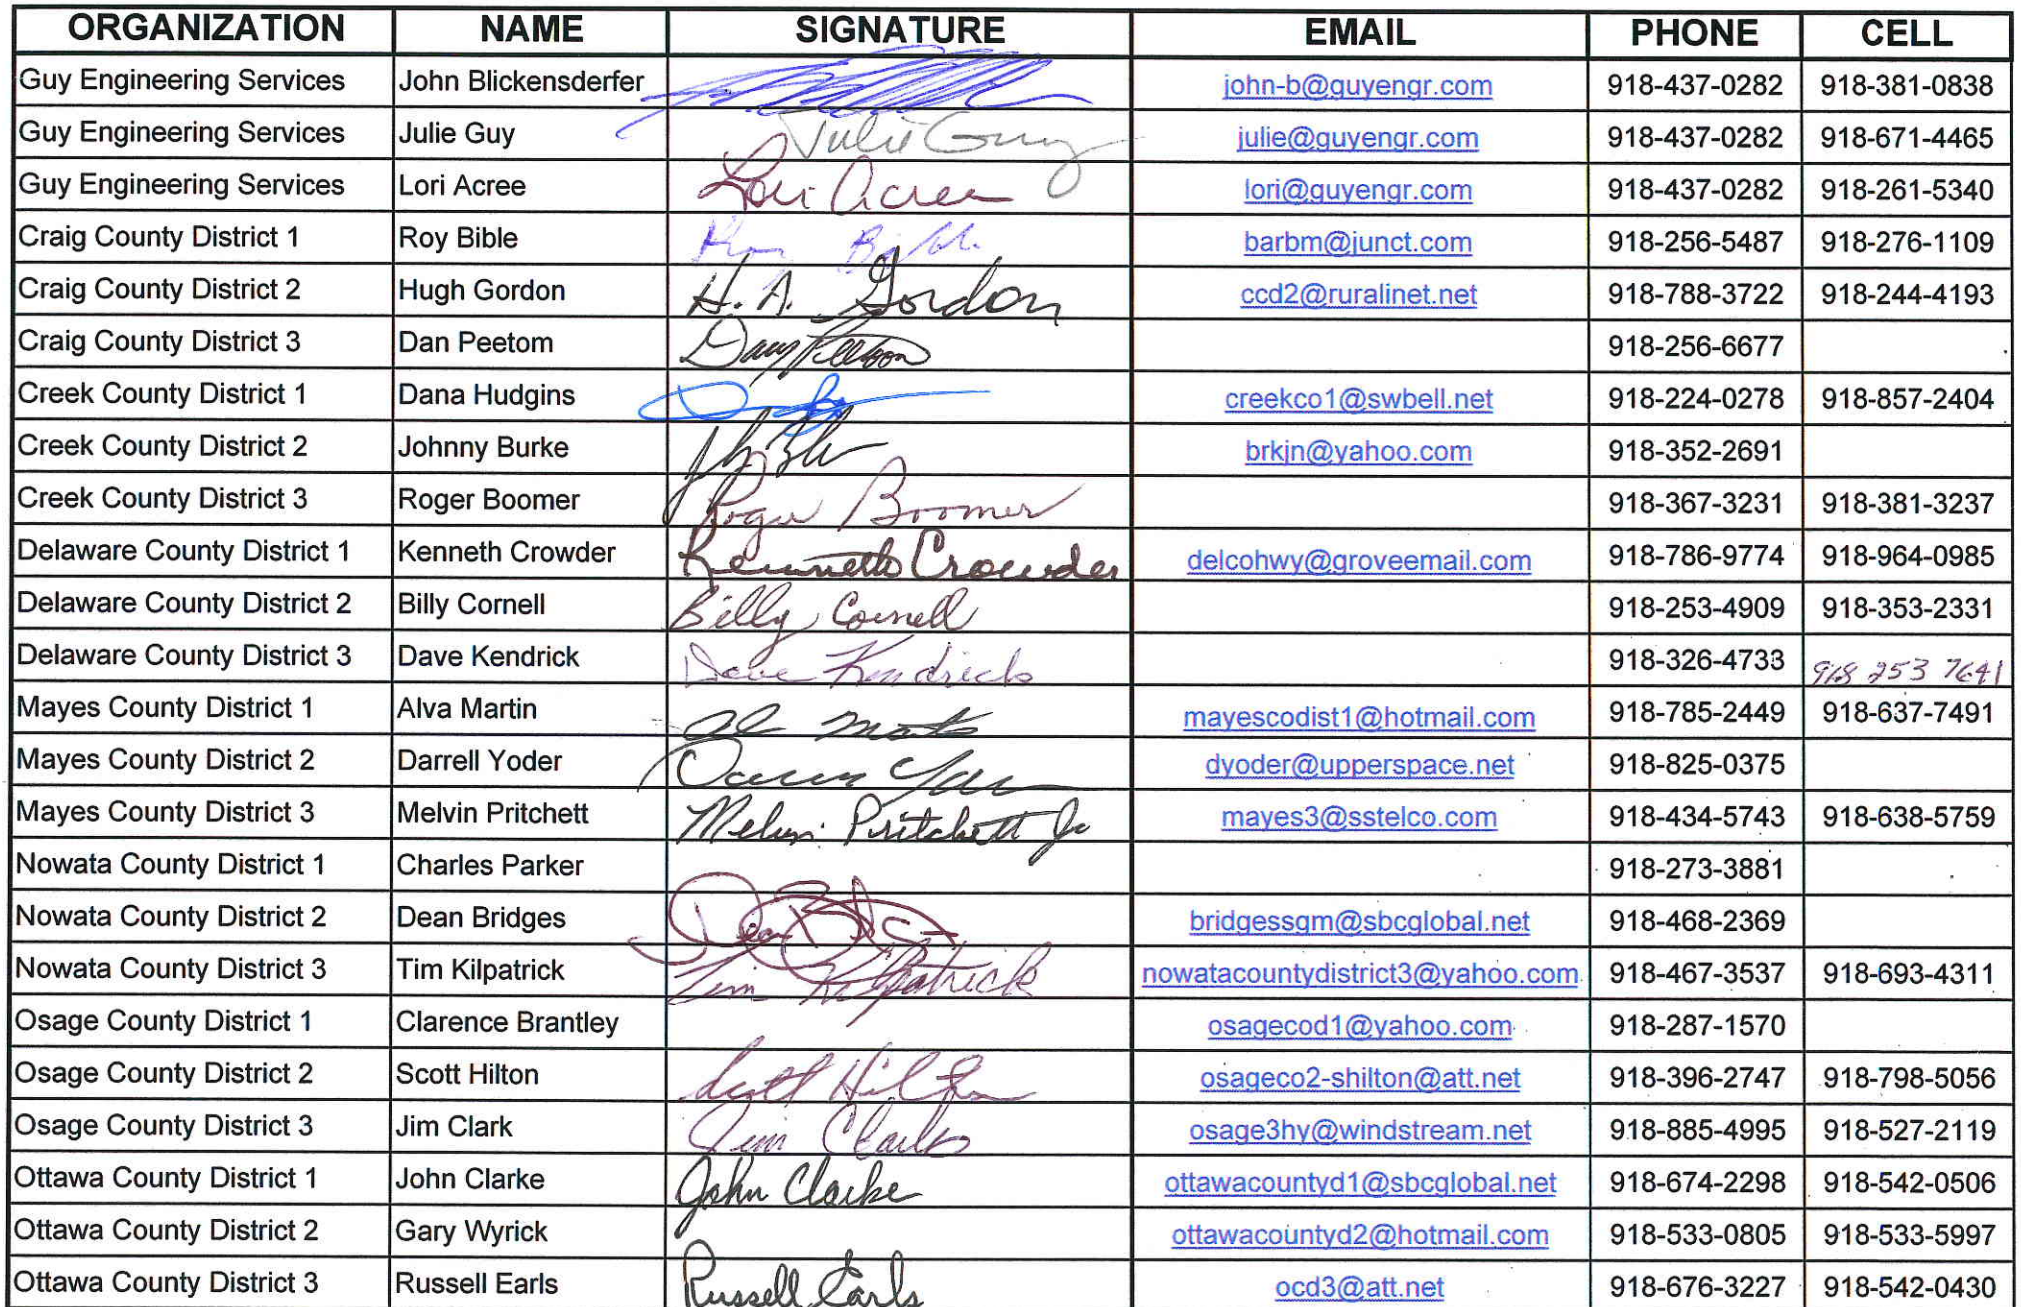 ORGANIZATION NAME SIGNATURE EMAIL PHONE CELL
Guy Engineering Services John Blickensderfer john-b@guyengr.com 918-437-0282 918-381-0838
Guy Engineering Services Julie Guy Julie Guy julie@guyengr.com 918-437-0282 918-671-4465
Guy Engineering Services Lori Acree Lori Acree lori@guyengr.com 918-437-0282 918-261-5340
Craig County District 1 Roy Bible barbm@junct.com 918-256-5487 918-276-1109
Craig County District 2 Hugh Gordon H. A. Gordon ccd2@ruralinet.net 918-788-3722 918-244-4193
Craig County District 3 Dan Peetom 918-256-6677
Creek County District 1 Dana Hudgins creekco1@swbell.net 918-224-0278 918-857-2404
Creek County District 2 Johnny Burke brkjn@yahoo.com 918-352-2691
Creek County District 3 Roger Boomer Roger Boomer 918-367-3231 918-381-3237
Delaware County District 1 Kenneth Crowder Kenneth Crowder delcohwy@groveemail.com 918-786-9774 918-964-0985
Delaware County District 2 Billy Cornell Billy Cornell 918-253-4909 918-353-2331
Delaware County District 3 Dave Kendrick Dave Kendrick 918-326-4733 918 253 7641
Mayes County District 1 Alva Martin mayescodist1@hotmail.com 918-785-2449 918-637-7491
Mayes County District 2 Darrell Yoder dyoder@upperspace.net 918-825-0375
Mayes County District 3 Melvin Pritchett Melvin Pritchett Jr mayes3@sstelco.com 918-434-5743 918-638-5759
Nowata County District 1 Charles Parker 918-273-3881
Nowata County District 2 Dean Bridges bridgessgm@sbcglobal.net 918-468-2369
Nowata County District 3 Tim Kilpatrick Tim Kilpatrick nowatacountydistrict3@yahoo.com 918-467-3537 918-693-4311
Osage County District 1 Clarence Brantley osagecod1@yahoo.com 918-287-1570
Osage County District 2 Scott Hilton Scott Hilton osageco2-shilton@att.net 918-396-2747 918-798-5056
Osage County District 3 Jim Clark Jim Clark osage3hy@windstream.net 918-885-4995 918-527-2119
Ottawa County District 1 John Clarke John Clarke ottawacountyd1@sbcglobal.net 918-674-2298 918-542-0506
Ottawa County District 2 Gary Wyrick ottawacountyd2@hotmail.com 918-533-0805 918-533-5997
Ottawa County District 3 Russell Earls Russell Earls ocd3@att.net 918-676-3227 918-542-0430